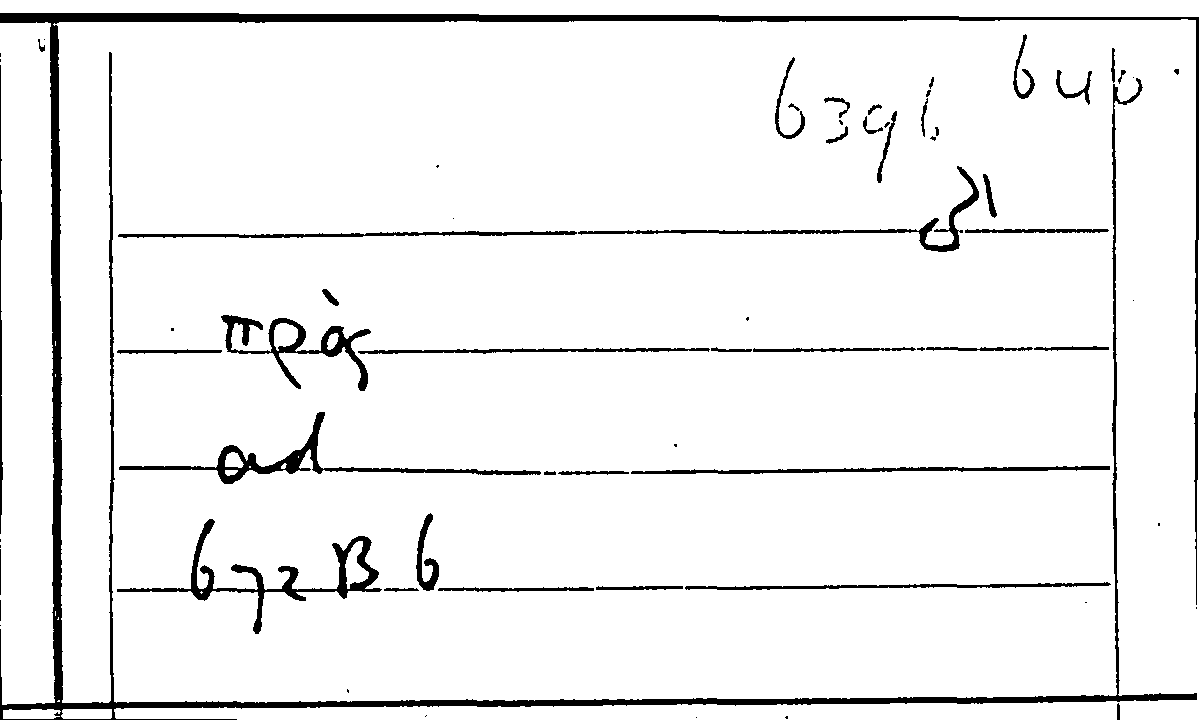 6396 640
πρὸς
ad
672 B 6